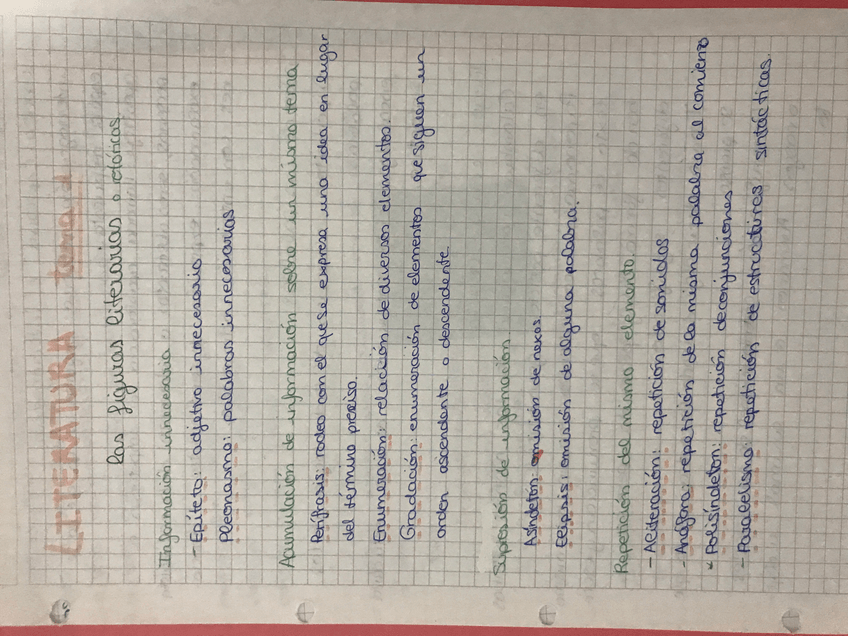 LITERATURA tema 1
las figuras literarias o retóricas
Información innecesaria:
- Epíteto: adjetivo innecesario
Pleonasmo: palabras innecesarias
Acumulación de información sobre un mismo tema
Perífrasis: rodeo con el que se expresa una idea en lugar
del término preciso.
Enumeración: relación de diversos elementos.
Gradación: enumeración de elementos que siguen un
orden ascendente o descendente
Supresión de información
Asíndeton: omisión de nexos
Elipsis: omisión de alguna palabra.
Repetición del mismo elemento.
- Aliteración: repetición de sonidos
- Anáfora: repetición de la misma palabra al comienzo
- Polisíndeton: repetición de conjunciones
- Paralelismo: repetición de estructuras sintácticas.